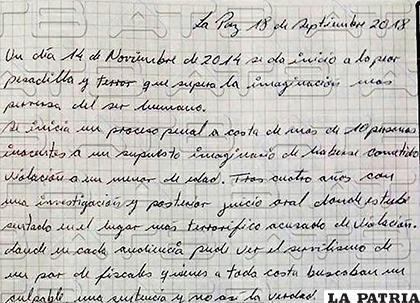 La Paz 18 de Septiembre 2018
Un día 14 de Noviembre de 2014 se da inicio a la peor
pesadilla y terror que supera la imaginación más
perversa del ser humano.
Se inicia un proceso penal a costa de más de 10 personas
inocentes a un supuesto imaginario de haberse cometido
violación a un menor de edad. Tras cuatro años con
una investigación y posterior juicio oral donde estube
sentado en el lugar más terrorífico acusado de violación.
donde en cada audiencia pude ver el servilismo de
un par de fiscales quienes a toda costa buscaban un
culpable una sentencia y no así la verdad
LA PATRIA